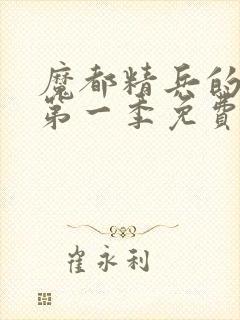 魔都精兵的
第一季免費
崔永利